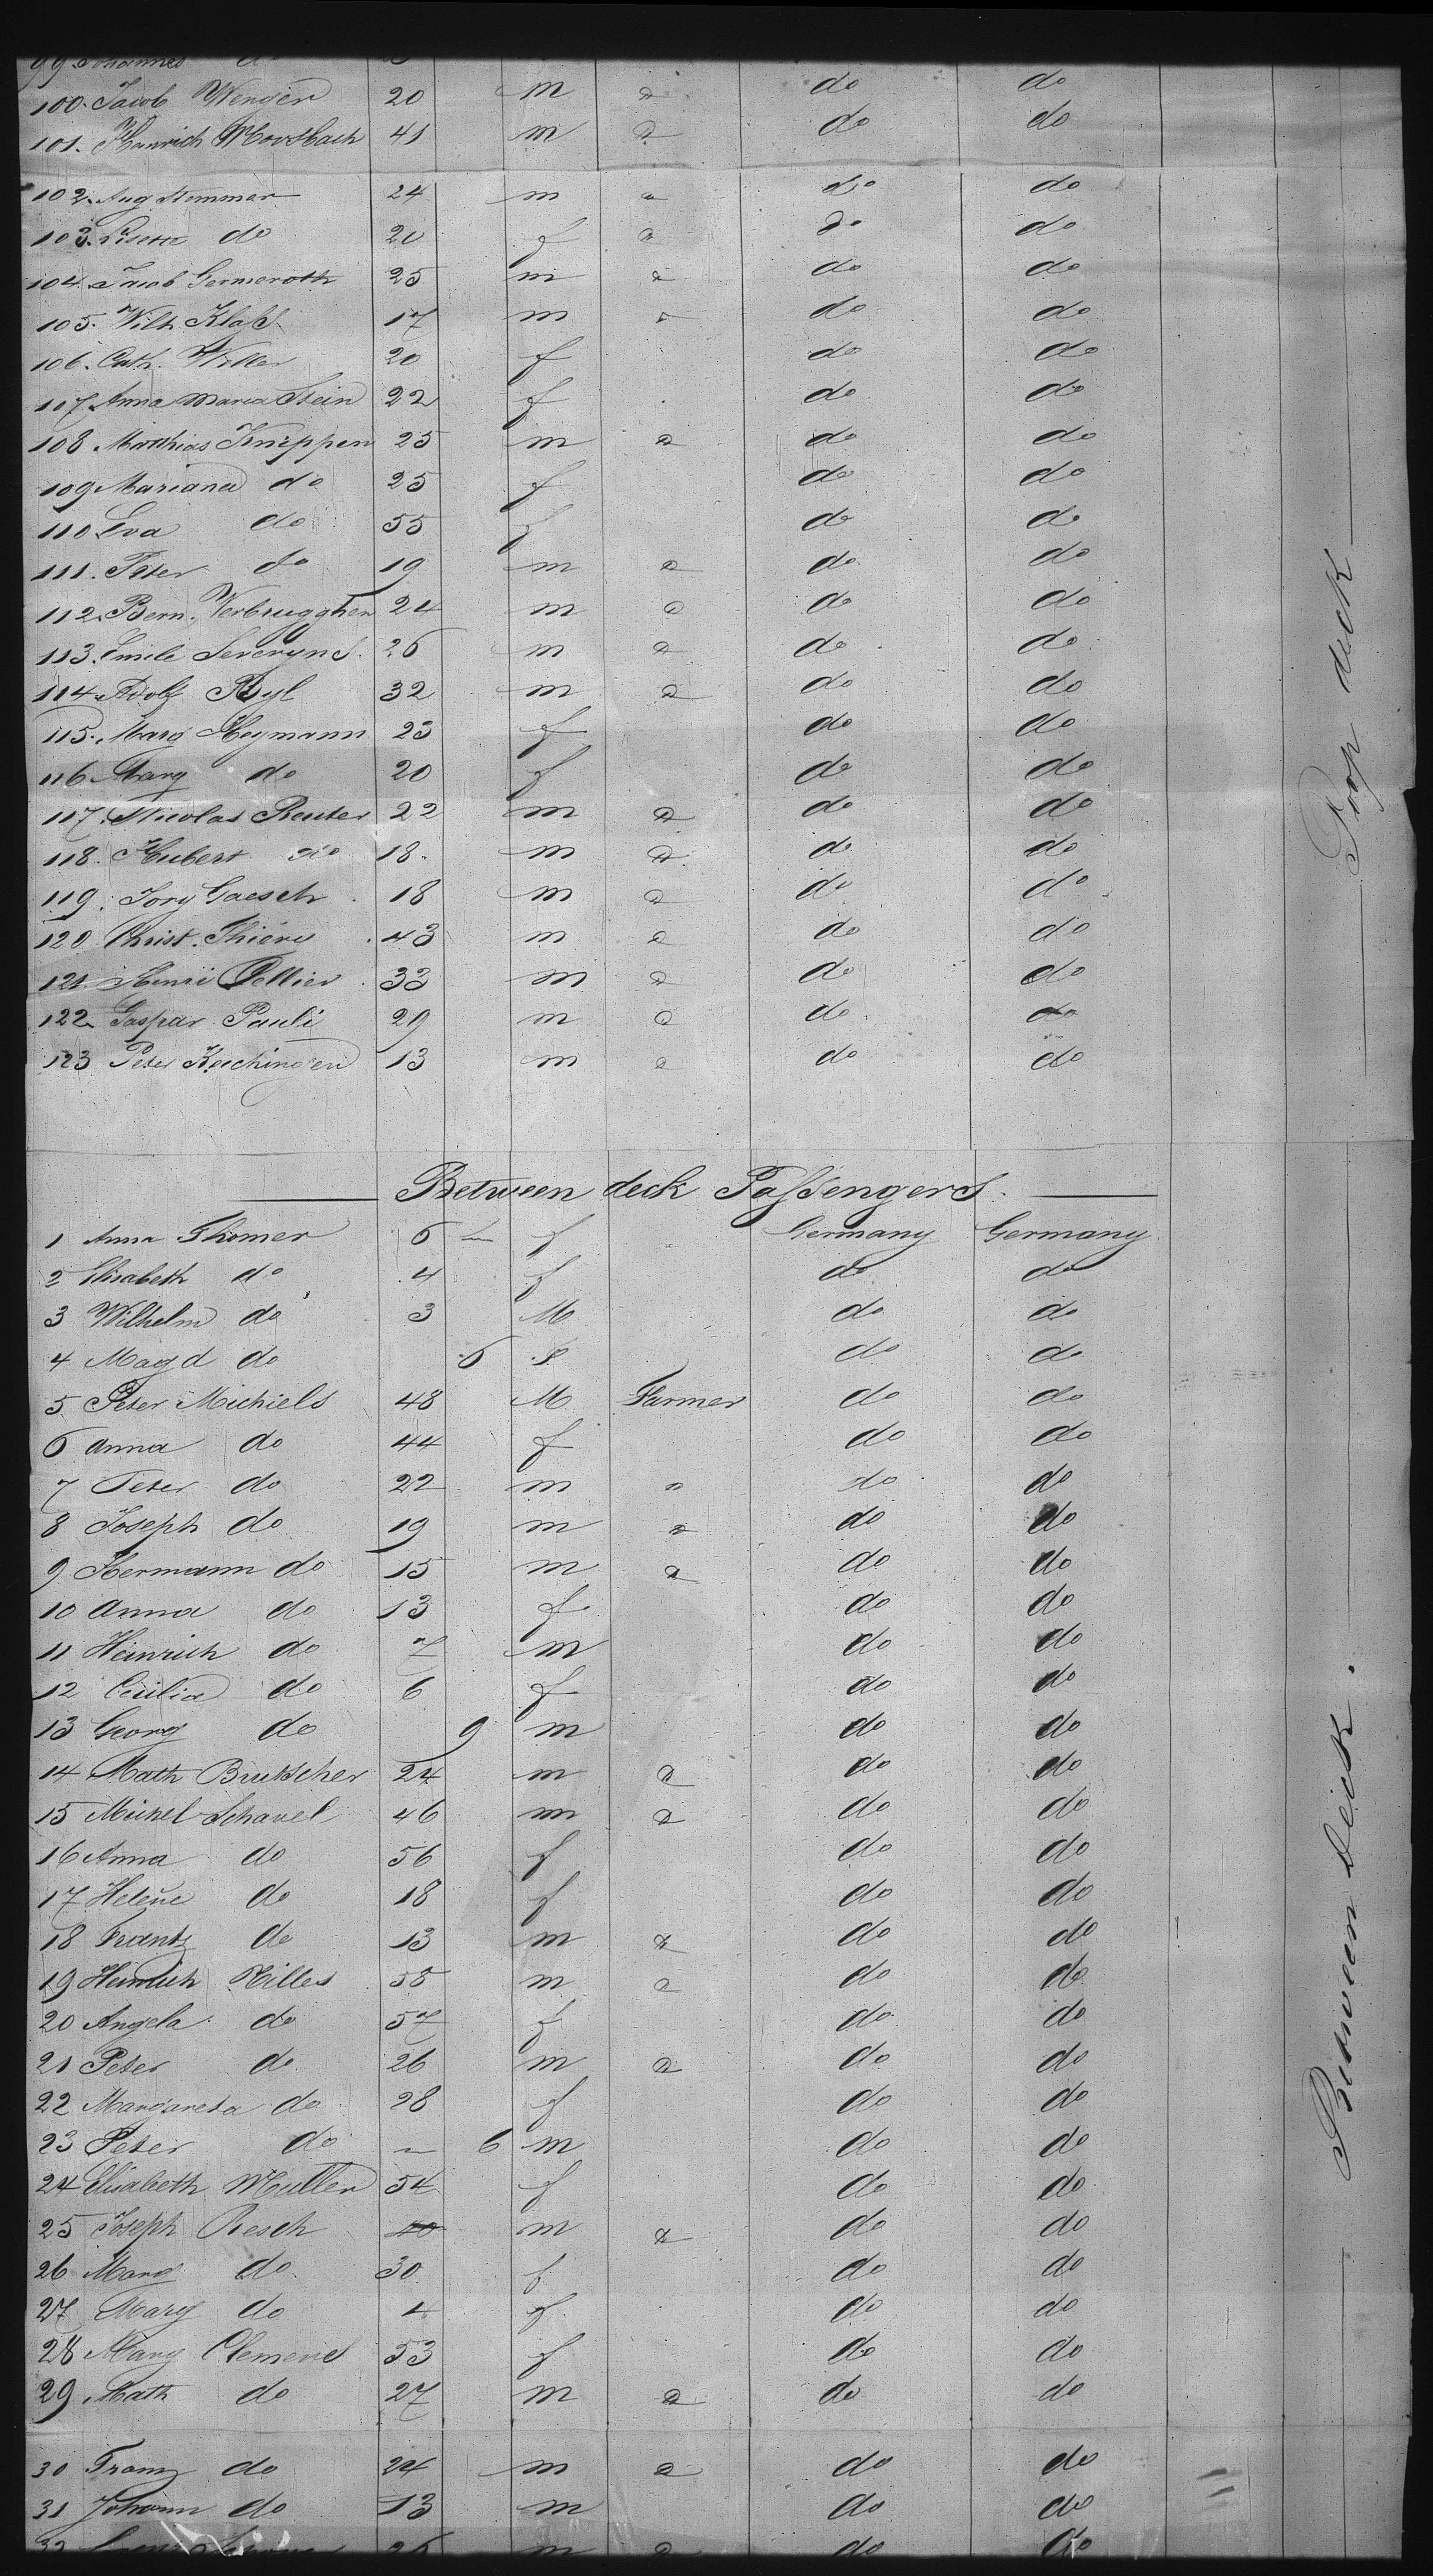 99. Johannes do
100. Jacob Wenger 20 m a do do
101. Heinrich Moosbach 41 m a do do
102. Aug Stemmer 24 m a do do
103. Lisette do 20 f a do do
104. Jacob Germeroth 25 m a do do
105. Wilh Klass 17 m a do do
106. Cath. 20 f do do
107. Anna Maria Stein 22 f do do
108 Matthias Knippen 25 m a do do
109 Mariana do 25 f do do
110 Eva do 55 f do do
111. Peter do 19 m a do do
112. Bern. Verbrugghen 24 m a do do
113. Emile Severyns. 26 m a do do
114. Adolf Ryl 32 m a do do
115. Marg Heymann 23 f do do
116 Marg do 20 f do do
117. Nicolas Reuter 22 m a do do
118. Hubert do 18. m a do do
119. Jory Gaesch 18 m a do do
120 Christ. Thiery 43 m a do do
121. Henri Pellier 33 m a do do
122. Gaspar Pauli 29 m a do do
123 Peter 13 m a do do
Poop deck
Between deck Passengers.
1 Anna Thomer 6 – f Germany Germany
2 Elisabeth do 4 f do do
3 Wilhelm do 3 M do do
4 Magd do 6 f do do
5 Peter Michiels 48 M Farmer do do
6 Anna do 44 f do do
7 Peter do 22 m " do do
8 Joseph do 19 m a do do
9 Hermann do 15 m a do do
10 Anna do 13 f do do
11 Heinrich do 7 m do do
12 Cecilia do 6 f do do
13 Georg do 9 m do do
14 Math Brutscher 24 m a do do
15 Michel Schavel 46 m a do do
16 Anna do 56 f do do
17 Helene do 18 f do do
18 Frantz do 13 m a do do
19 Heinrich Hilles 58 m a do do
20 Angela do 57 f do do
21 Peter do 26 m a do do
22 Margareta do 28 f do do
23 Peter do – 6 m do do
24 Elisabeth Muller 54 f do do
25 Joseph Resch 40 m a do do
26 Marg do 30 f do do
27 Marg do 4 f do do
28 Marg Clemens 53 f do do
29 Math do 27 m a do do
30 Franz do 24 m a do do
31 Johann do 13 m do do
32 26 m a do do
Between deck.